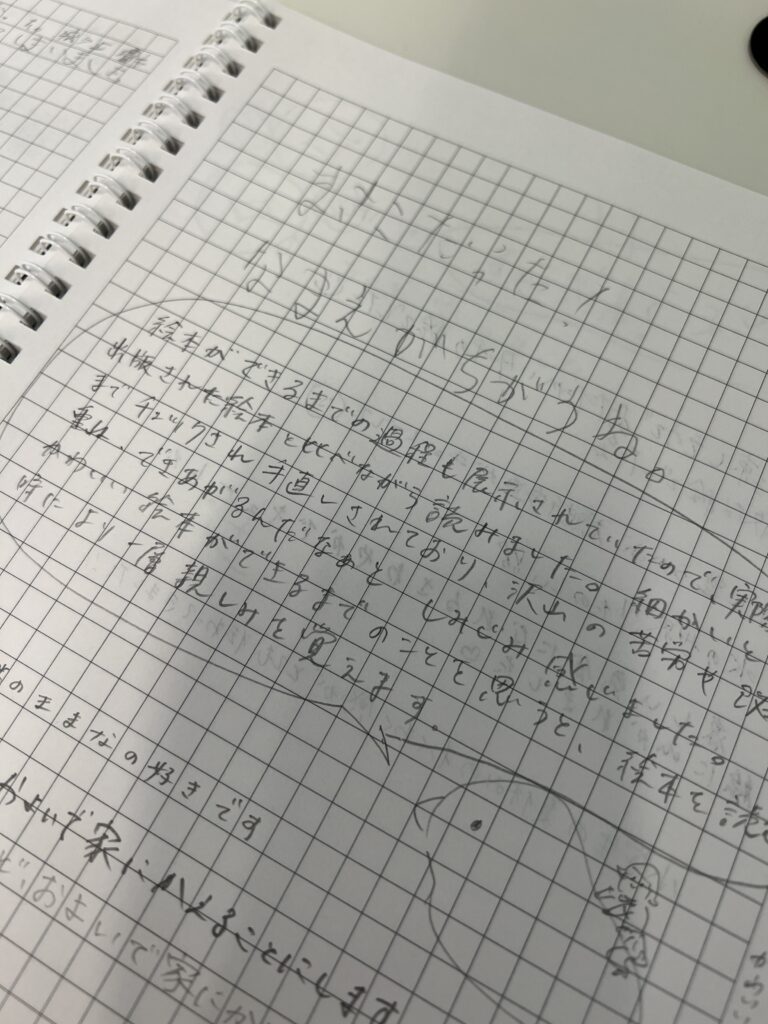 まなだった!
なまえがちがうね。
絵本ができるまでの過程も展示されていたので、実際
出版された絵本と比べながら読みました。細かいと
までチェックされ手直しされており、沢山の苦労や
重ね できあがるんだなあと しみじみ感じました。
かわいい 絵本ができるまでのことを思うと、絵本を読
時により一層親しみを覚えます。
のままなの好きです
およいで家にかえることにします
ど、およいで家にか
かわいい